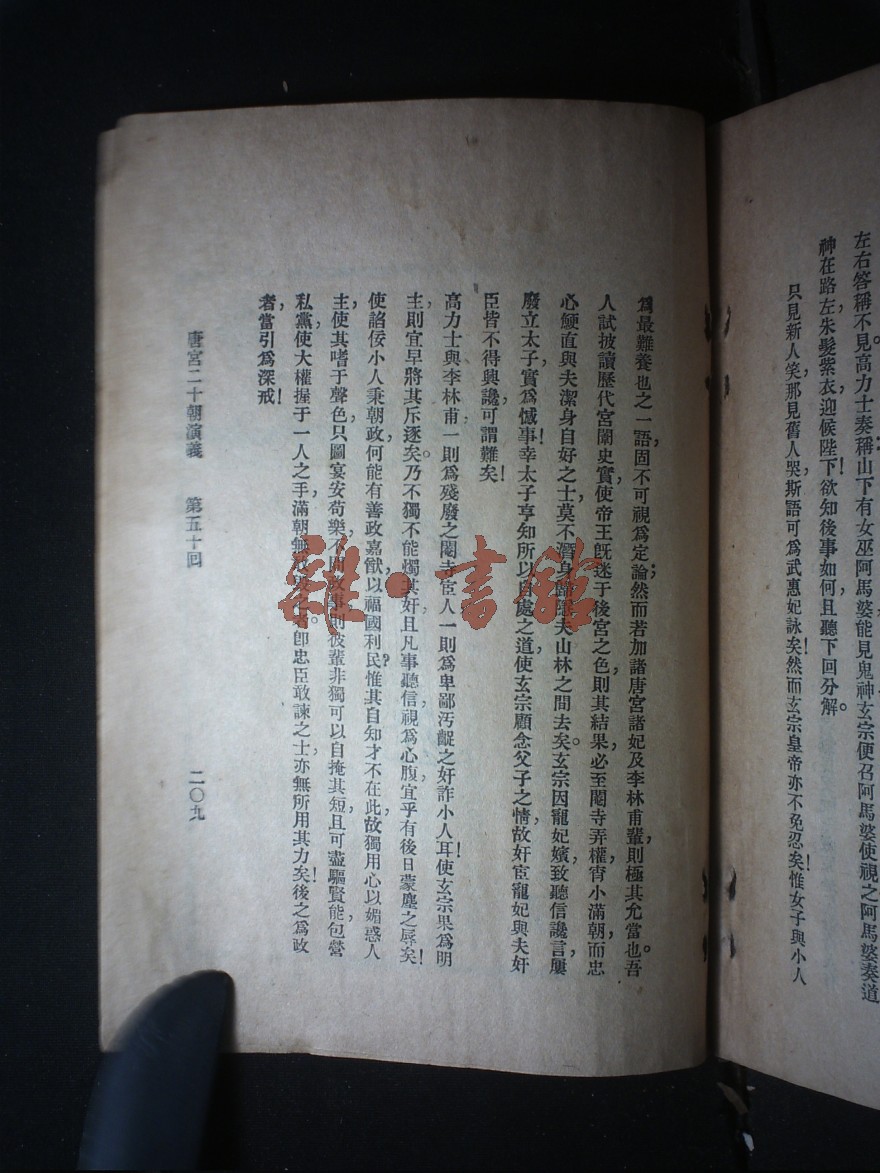 左右答稱不見。高力士奏稱山下有女巫阿馬婆能見鬼神玄宗便召阿馬婆使視之阿馬婆奏道
神在路左朱髮紫衣迎候陛下!欲知後事如何且聽下回分解。
只見新人笑,那見舊人哭斯語可爲武惠妃詠矣!然而玄宗皇帝亦不免忍矣!惟女子與小人
爲最難養也之一語,固不可視爲定論;然而若加諸唐宮諸妃及李林甫輩,則極其允當也。吾
人試披讀歷代宮闈史實,使帝王旣迷于後宮之色,則其結果,必至閹寺弄權,宵小滿朝,而忠
心鯁直與夫潔身自好之士,莫不潛身 夫山林之間去矣。玄宗因寵妃嬪,致聽信讒言,屢
廢立太子,實爲憾事!幸太子亨知所以自處之道,使玄宗顧念父子之情,故奸宦寵妃與夫奸
臣,皆不得興讒,可謂難矣!
高力士與李林甫,一則爲殘廢之閹寺宦人,一則爲卑鄙汚齷之奸詐小人耳!使玄宗果爲明
主,則宜早將其斥逐矣。乃不獨不能燭其奸,且凡事聽信,視爲心腹,宜乎有後日蒙塵之辱矣!
使諂佞小人秉朝政,何能有善政嘉猷以福國利民?惟其自知才不在此,故獨用心以媚惑人
主,使其嗜于聲色,只圖宴安苟樂,不問政事,則彼輩非獨可以自掩其短,且可盡驅賢能,包營
私黨,使大權握于一人之手,滿朝無 者。卽忠臣敢諫之士,亦無所用其力矣!後之爲政
者,當引爲深戒!
唐宮二十朝演義 第五十回 二〇九
雜·書館